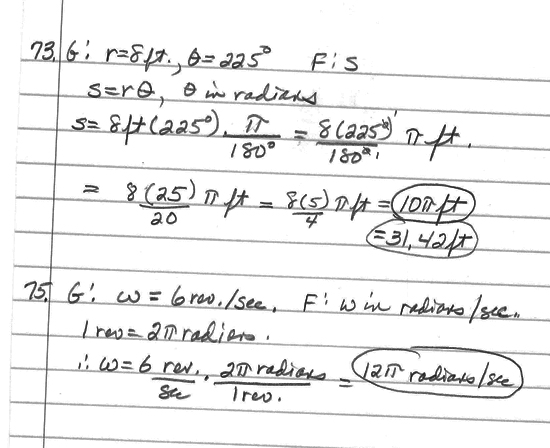 73. G: r=8ft., θ=225° F: s
s=rθ, θ in radians
s= 8ft(225°) · π/180° = 8(225°)/180° π ft.
= 8(25)/20 π ft = 8(5)/4 π ft = 10π ft
=31.42ft
75. G: ω = 6 rev./sec. F: ω in radians/sec.
1 rev = 2π radians.
∴ ω= 6 rev./sec · 2π radians/1 rev. = 12π radians/sec